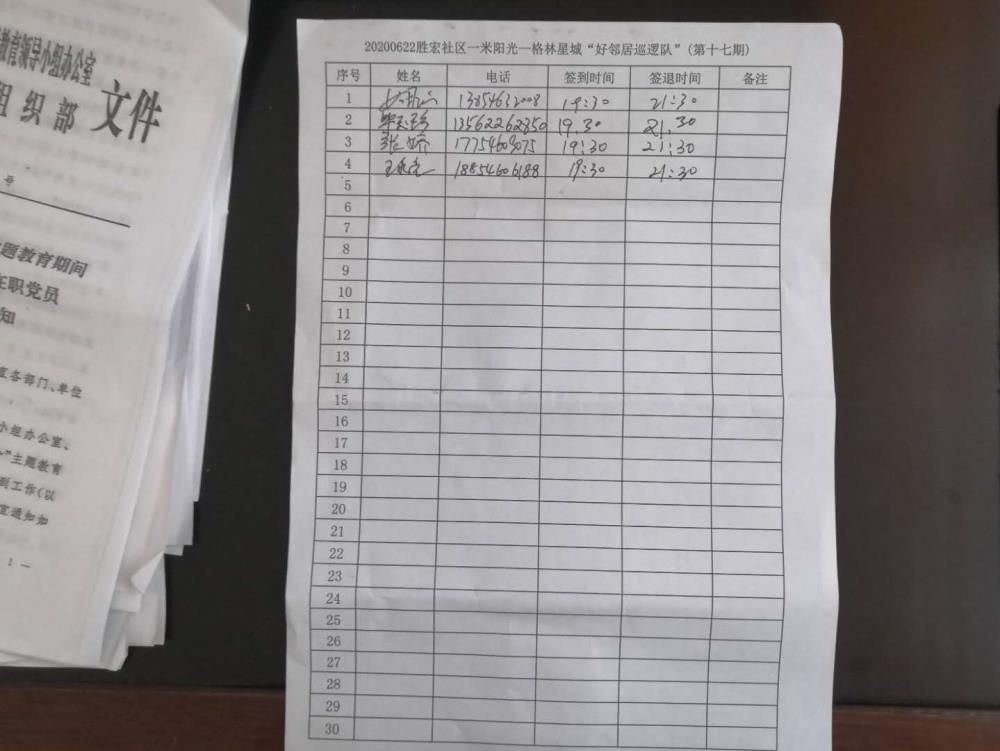 教育领导小组办公室
组织部 文件
号
题教育期间
在职党员
知
各部门、单位
小组办公室、
"主题教育
到工作(以
通知如
20200622胜宏社区一米阳光一格林星城“好邻居巡逻队”(第十七期)
序号 姓名 电话 签到时间 签退时间 备注
1 19:30 21:30
2 13562262850 19.30 21.30
3 17754609075 19:30 21:30
4 18854606188 19:30 21:30
5
6
7
8
9
10
11
12
13
14
15
16
17
18
19
20
21
22
23
24
25
26
27
28
29
30